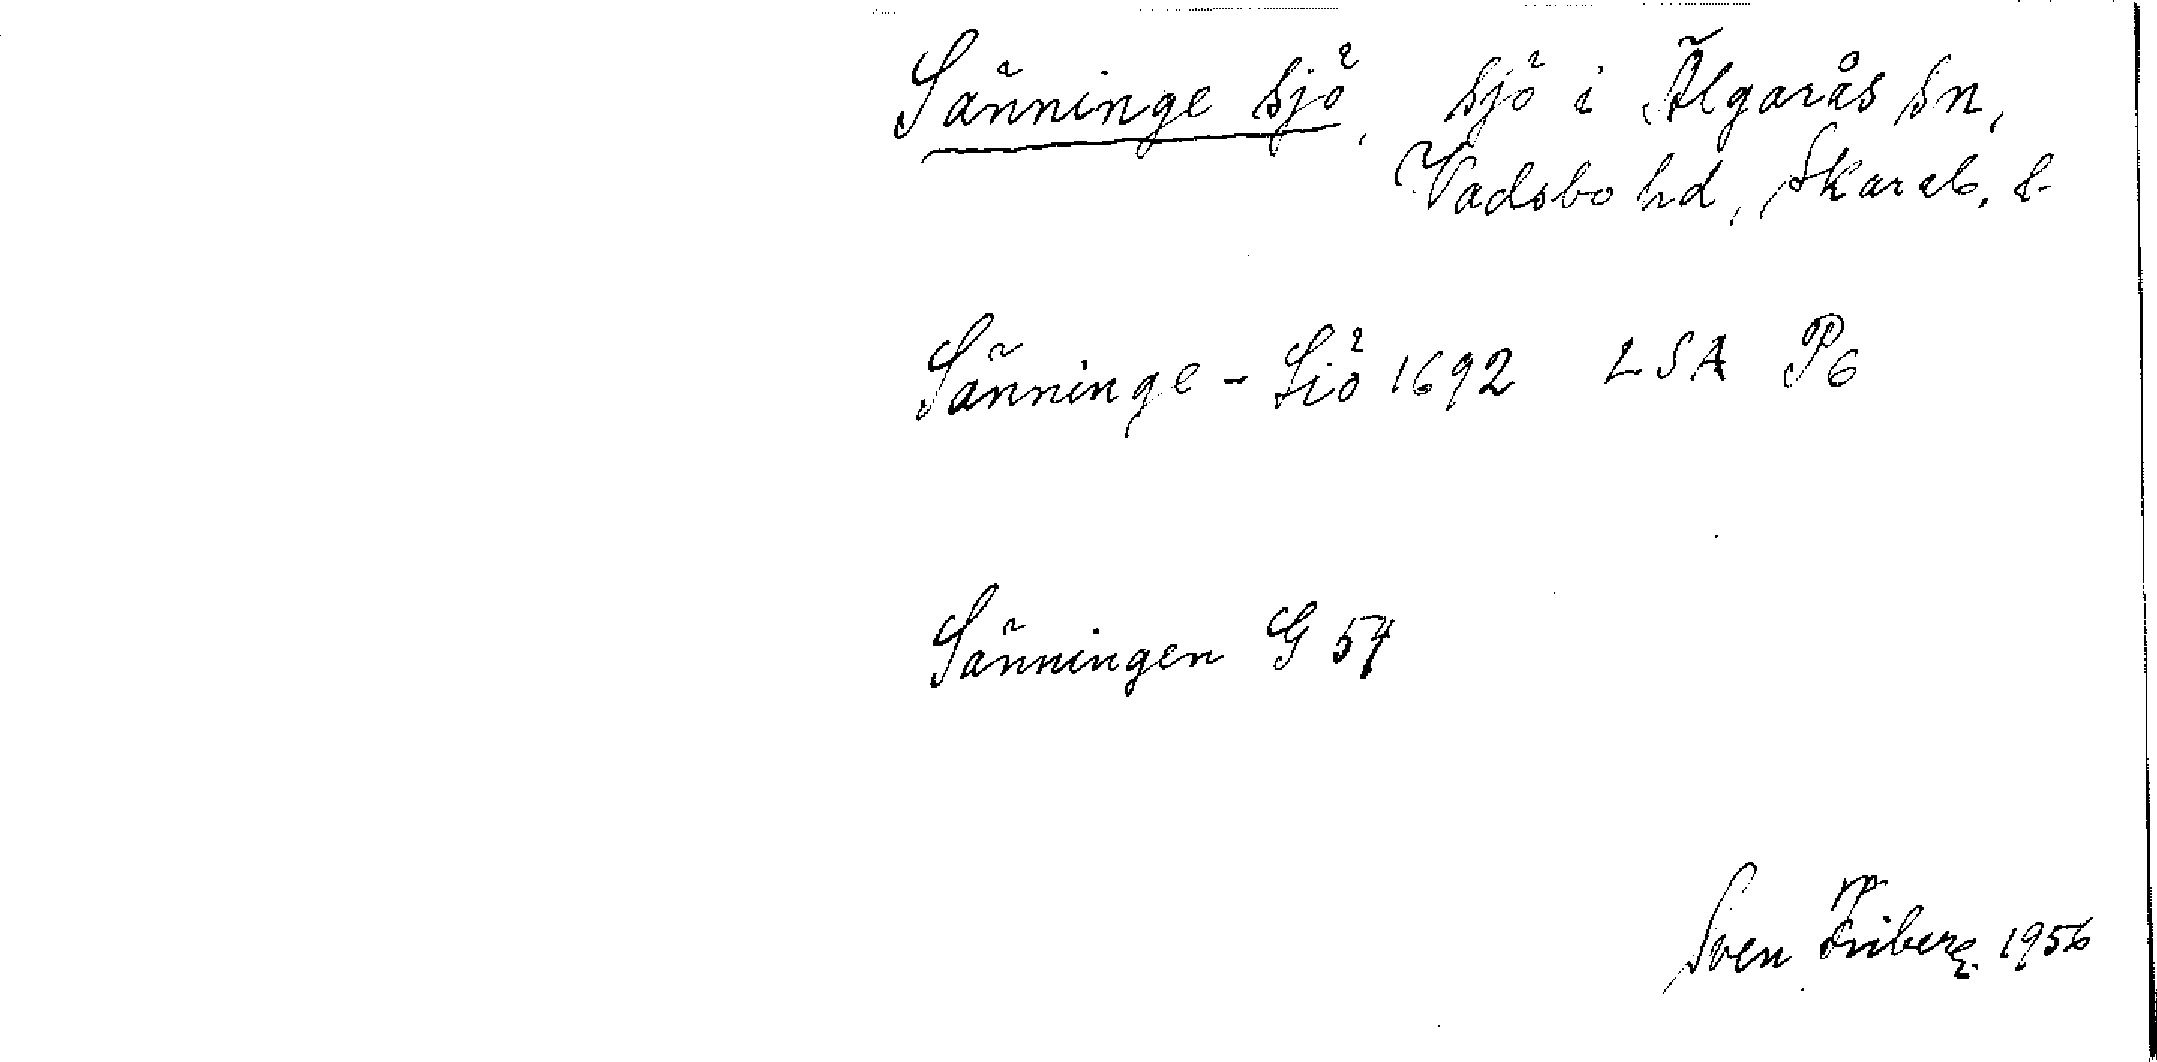 Sänninge sjö, sjö i Älgarås sn,
Vadsbo hd, Skarab. l.
Sänninge - Siö 1692 LSA P6
Sänningen G 54
Sven Friberg. 1956